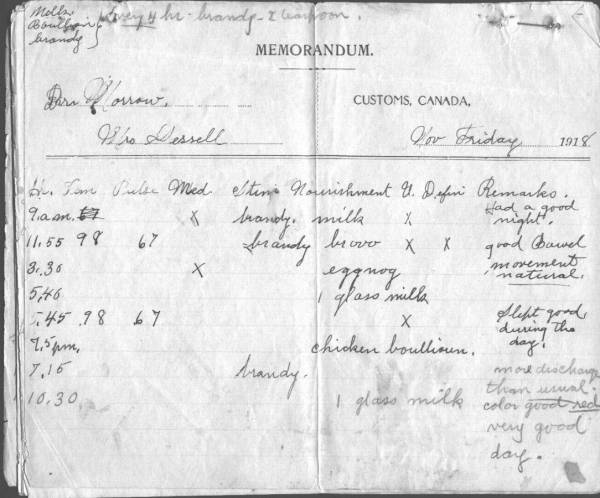 Milk
Boullion
brandy } Every 4 hr - brandy - 2 teaspoon.
MEMORANDUM.
Dr. Morrow,
CUSTOMS, CANADA,
Mrs Dessell
Nov Friday 1918
Hr. Tem Pulse Med Stim Nourishment U. Defri Remarks.
9 a.m. x brandy. milk x Had a good
night.
11.55 98 67 brandy brovo x x good Bowel
movement
natural.
3.30 x eggnog
5.40 1 glass milk
5.45 98 67 x Slept good
during the
day.
7.5pm. chicken boullioun.
7.15 brandy. more discharge
than usual.
10.30 1 glass milk color good red
very good
day.